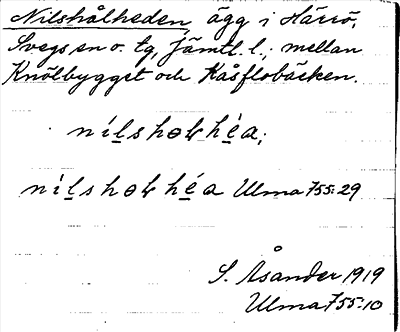 Nilshålheden, ägg i Härrö,
Svegs sn o. tg, Jämtl. l.; mellan
Knölbygget och Kåsflobäcken.
nílshɵlhéa;
nílshɵlhéa Ulma 755:29
S. Åsander 1919
Ulma 755:10